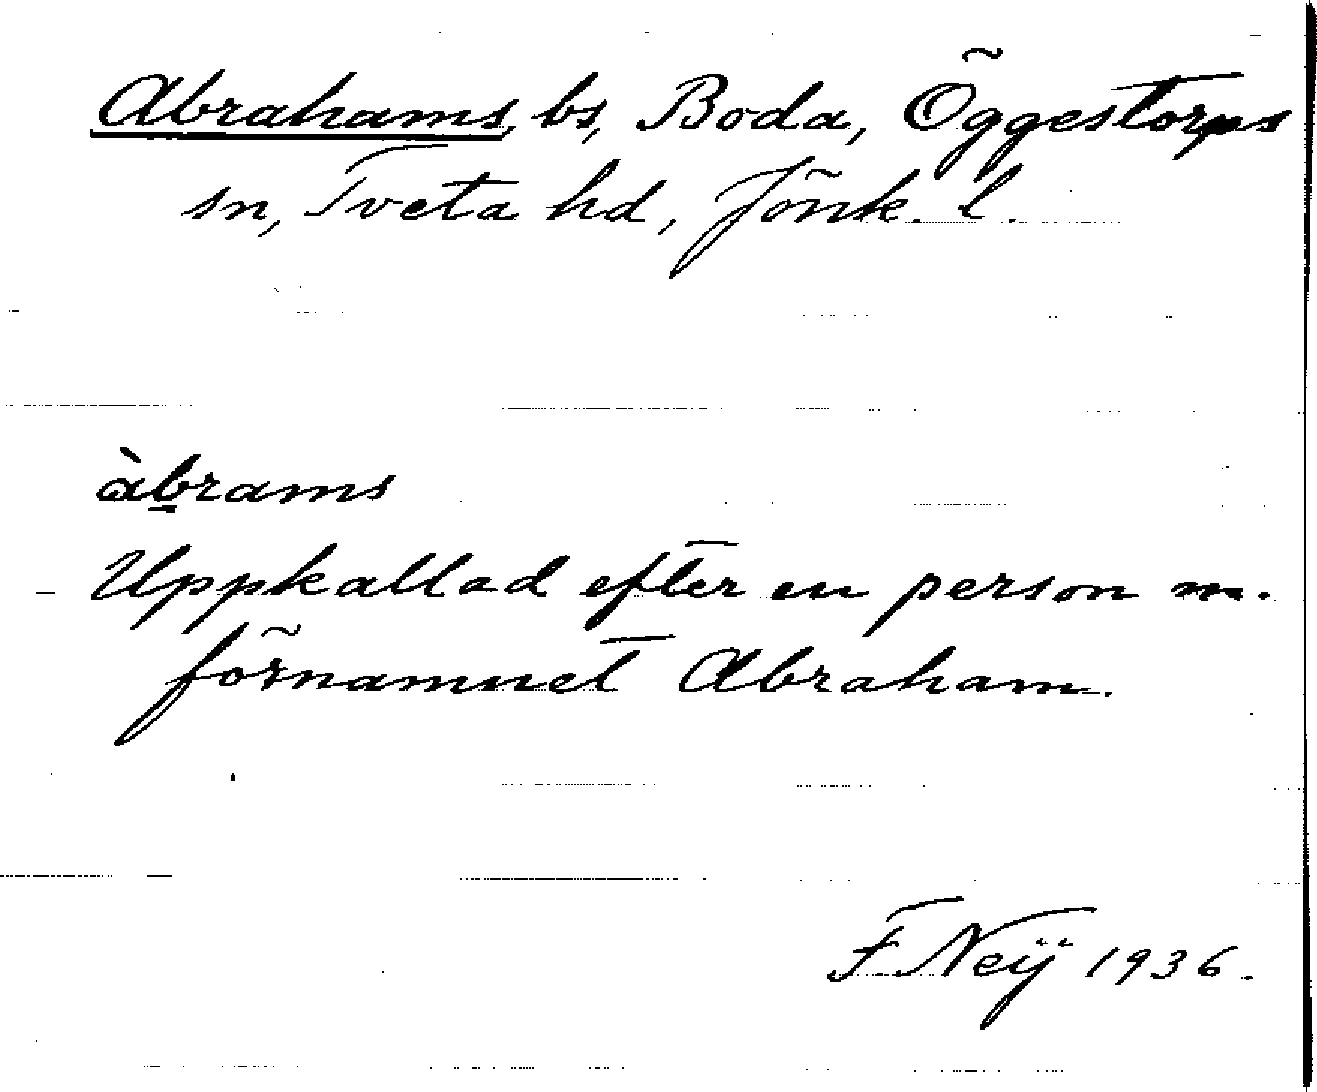 Abrahams, bs, Boda, Öggestorps
sn, Tveta hd, Jönk. l.
àbrams
Uppkallad efter en person m.
förnamnet Abraham.
F Neÿ 1936.